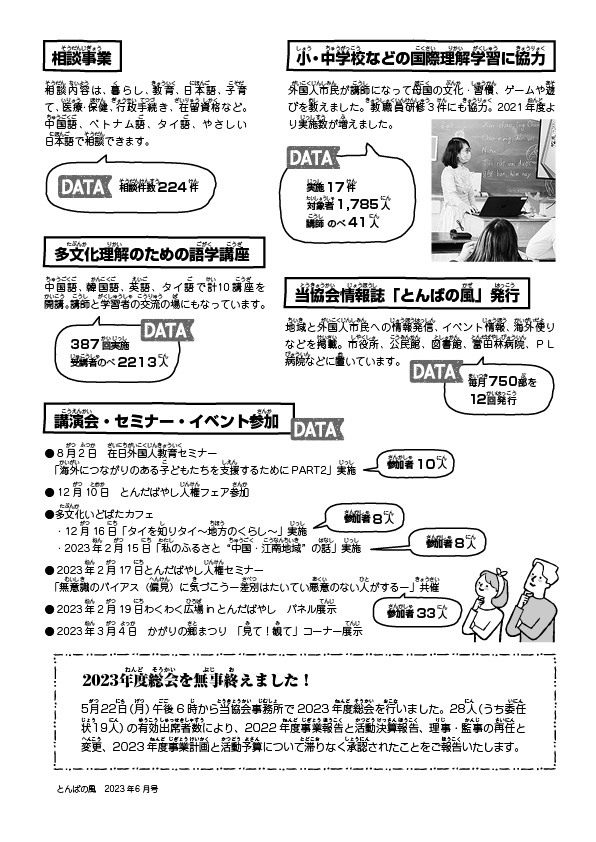 相談事業
相談内容は、暮らし、教育、日本語、子育
て、医療・保健、行政手続き、在留資格など。
中国語、ベトナム語、タイ語、やさしい
日本語で相談できます。
DATA
相談件数224件
小・中学校などの国際理解学習に協力
外国人市民が講師になって母国の文化・習慣、ゲームや遊
びを教えました。教職員研修3件にも協力。2021年度よ
り実施数が増えました。
DATA
実施17件
対象者1,785人
講師 のべ41人
多文化理解のための語学講座
中国語、韓国語、英語、タイ語で計10講座を
開講。講師と学習者の交流の場にもなっています。
DATA
387回実施
受講者のべ2213人
当協会情報誌「とんぼの風」発行
地域と外国人市民への情報発信、イベント情報、海外便り
などを掲載。市役所、公民館、図書館、富田林病院、PL
病院などに置いています。
DATA
毎月750部を
12回発行
講演会・セミナー・イベント参加
DATA
●8月2日 在日外国人教育セミナー
「海外につながりのある子どもたちを支援するためにPART2」実施
参加者10人
●12月10日 とんだばやし人権フェア参加
●多文化いどばたカフェ
・12月16日「タイを知りタイ～地方のくらし～」実施
参加者8人
・2023年2月15日「私のふるさと “中国・江南地域” の話」実施
参加者8人
●2023年2月17日とんだばやし人権セミナー
「無意識のバイアス（偏見）に気づこう―差別はたいてい悪意のない人がする―」共催
参加者33人
●2023年2月19日わくわく広場inとんだばやし パネル展示
●2023年3月4日 かがりの郷まつり 「見て！観て」コーナー展示
2023年度総会を無事終えました！
5月22日（月）午後6時から当協会事務所で2023年度総会を行いました。28人（うち委任
状19人）の有効出席者数により、2022年度事業報告と活動決算報告、理事・監事の再任と
変更、2023年度事業計画と活動予算について滞りなく承認されたことをご報告いたします。
とんぼの風 2023年6月号